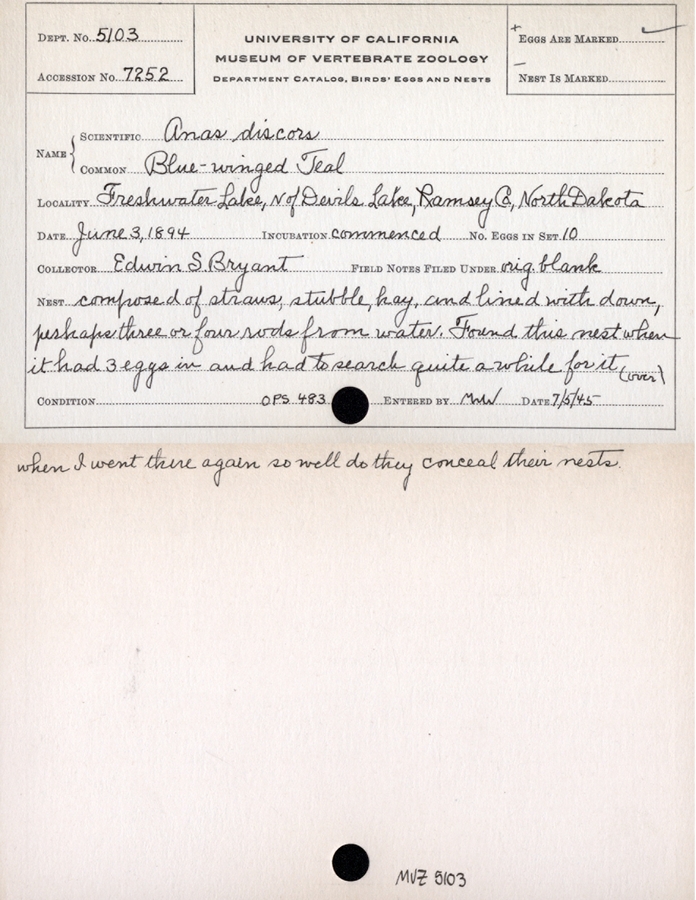 DEPT. NO. 5103
ACCESSION NO. 7252
UNIVERSITY OF CALIFORNIA
MUSEUM OF VERTEBRATE ZOOLOGY
DEPARTMENT CATALOG, BIRDS' EGGS AND NESTS
+ EGGS ARE MARKED ✓
— NEST IS MARKED
NAME { SCIENTIFIC Anas discors
COMMON Blue-winged Teal
LOCALITY Freshwater Lake, N of Devils Lake, Ramsey Co, North Dakota
DATE June 3, 1894 INCUBATION commenced NO. EGGS IN SET 10
COLLECTOR Edwin S. Bryant FIELD NOTES FILED UNDER orig. blank
NEST composed of straws, stubble, hay, and lined with down,
perhaps three or four rods from water. Found this nest when
it had 3 eggs in and had to search quite a while for it (over)
CONDITION OPS 483 ENTERED BY MWW DATE 7/5/45
when I went there again so well do they conceal their nests.
MVZ 5103